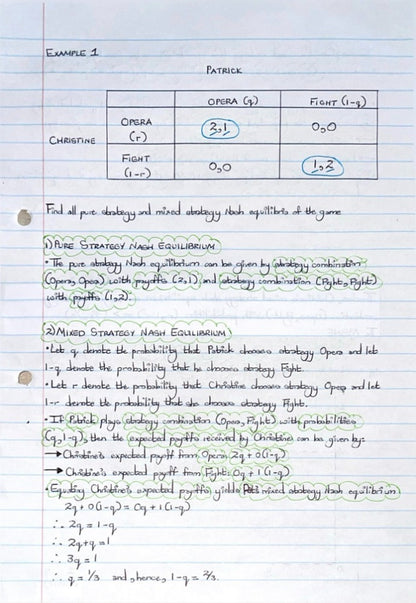 EXAMPLE 1
PATRICK
OPERA (q) FIGHT (1-q)
CHRISTINE OPERA (r) 2,1 0,0
FIGHT (1-r) 0,0 1,2
Find all pure strategy and mixed strategy Nash equilibria of the game
1) PURE STRATEGY NASH EQUILIBRIUM
• The pure strategy Nash equilibrium can be given by strategy combination
(Opera, Opera) with payoffs (2,1) and strategy combination (Fight, Fight)
with payoffs (1,2).
2) MIXED STRATEGY NASH EQUILIBRIUM
• Let q denote the probability that Patrick chooses strategy Opera and let
1-q denote the probability that he chooses strategy Fight.
• Let r denote the probability that Christine chooses strategy Opera and let
1-r denote the probability that she chooses strategy Fight.
• If Patrick plays strategy combination (Opera, Fight) with probabilities
(q, 1-q), then the expected payoffs received by Christine can be given by:
→ Christine's expected payoff from Opera: 2q + 0(1-q)
→ Christine's expected payoff from Fight: 0q + 1(1-q)
• Equating Christine's expected payoffs yields Pat's mixed strategy Nash equilibrium
2q + 0(1-q) = 0q + 1(1-q)
∴ 2q = 1-q
∴ 2q+q = 1
∴ 3q = 1
∴ q = 1/3 and, hence, 1-q = 2/3.